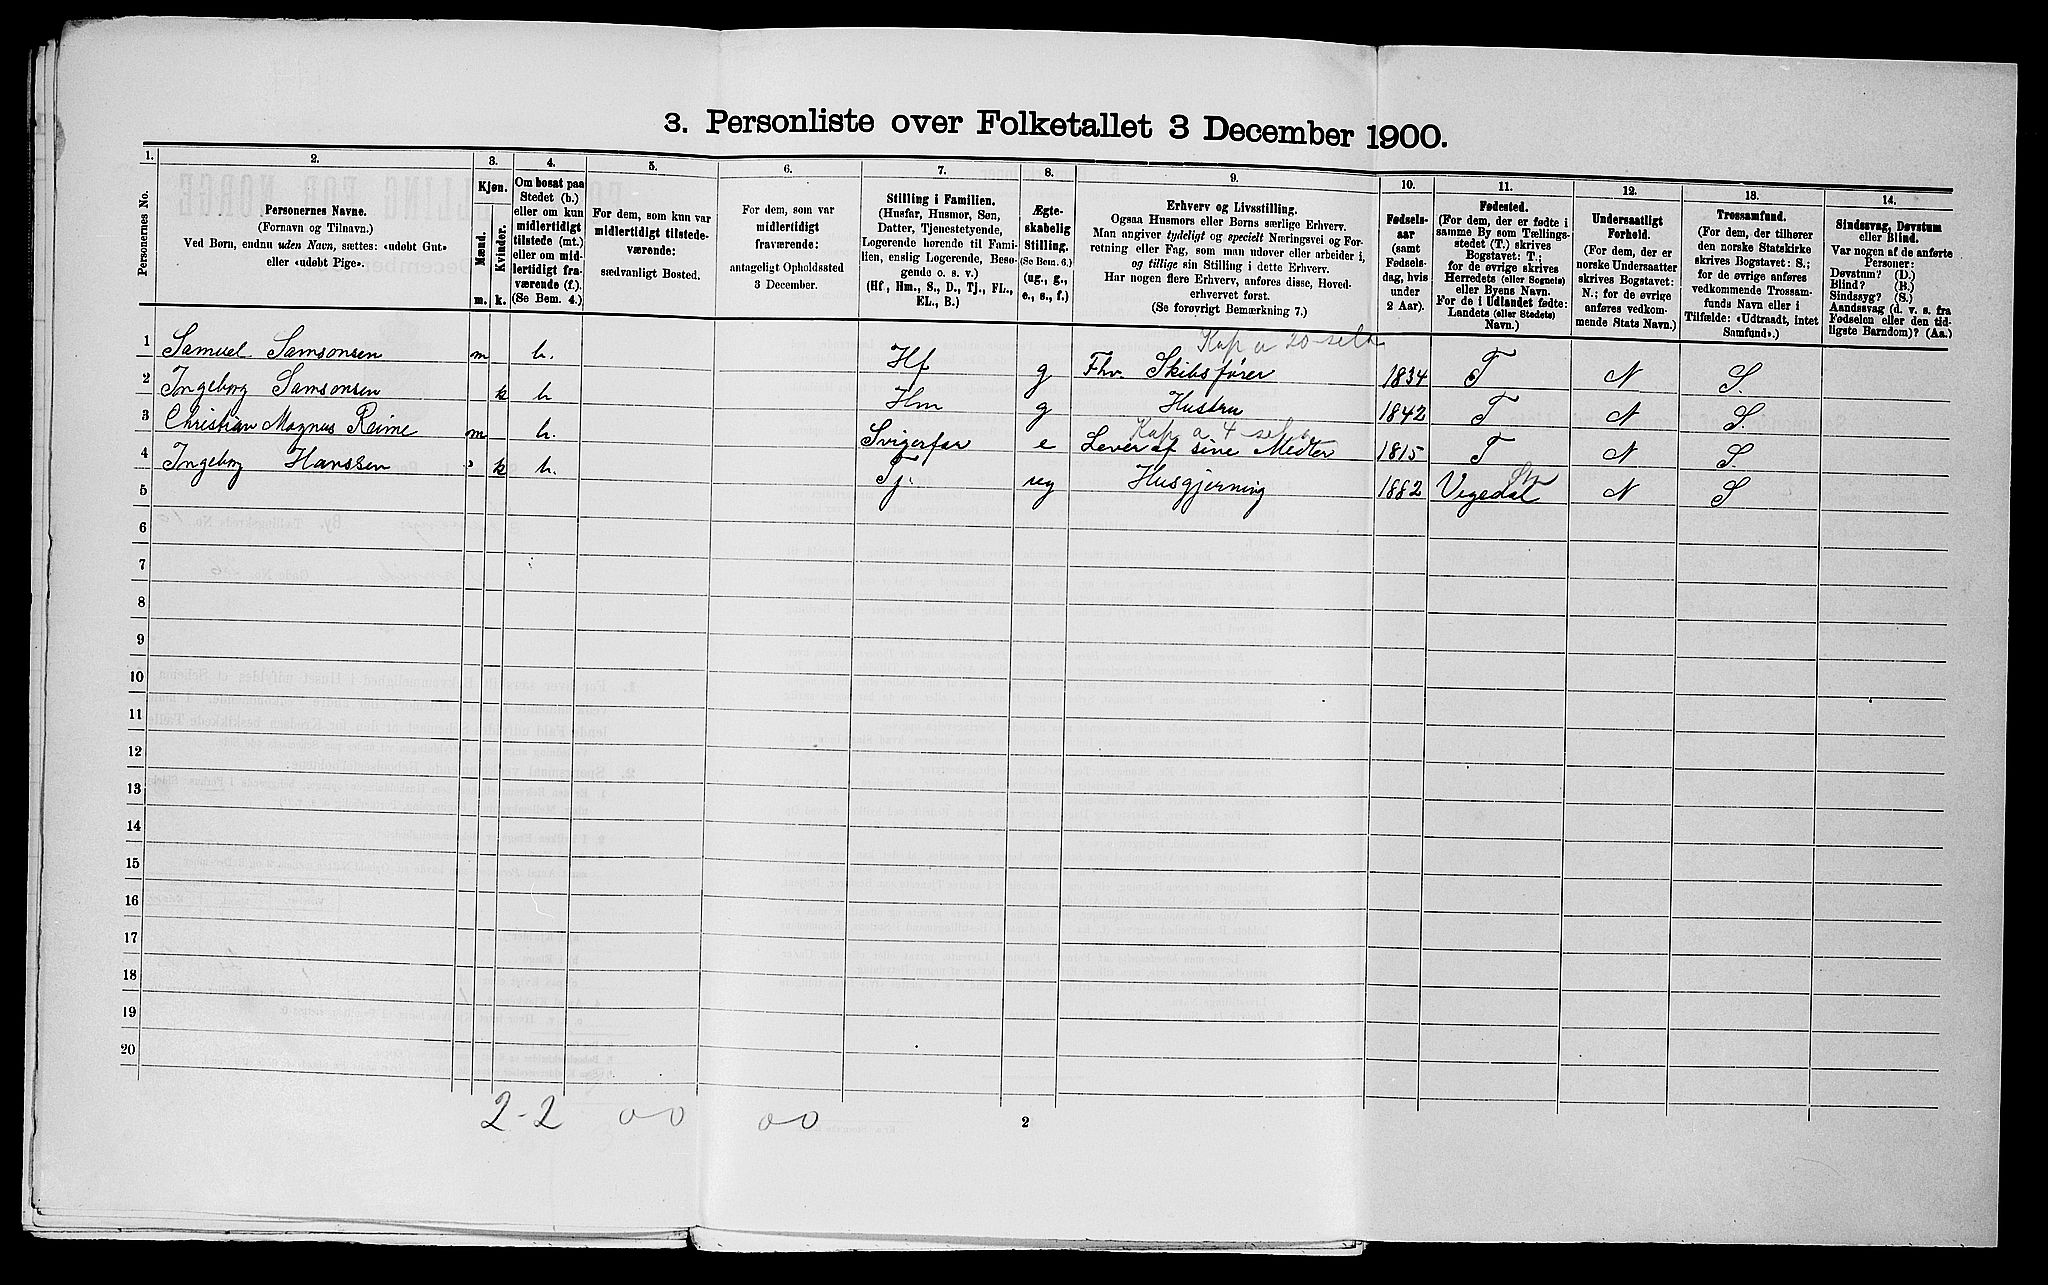 3. Personliste over Folketallet 3 December 1900.
1. 2. 3. 4. 5. 6. 7. 8. 9. 10. 11. 12. 13. 14.
Personernes No.
Personernes Navne.
(Fornavn og Tilnavn.)
Ved Børn, endnu uden Navn, sættes: «udøbt Gut»
eller «udøbt Pige».
Kjøn.
Mænd.
Kvinder.
m. k.
Om bosat paa
Stedet (b.)
eller om kun
midlertidigt
tilstede (mt.)
eller om mid-
lertidigt fra-
værende (f.).
(Se Bem. 4.)
For dem, som kun var
midlertidigt tilstede-
værende:
sædvanligt Bosted.
For dem, som var
midlertidigt
fraværende:
antageligt Opholdssted
3 December.
Stilling i Familien.
(Husfar, Husmor, Søn,
Datter, Tjenestetyende,
Logerende hørende til Fami-
lien, enslig Logerende, Besø-
gende o. s. v.)
(Hf., Hm., S., D., Tj., FL.,
EL., B.)
Ægte-
skabelig
Stilling.
(Se Bem. 6.)
(ug., g.,
e., s., f.)
Erhverv og Livsstilling.
Ogsaa Husmors eller Børns særlige Erhverv.
Man angiver tydeligt og specielt Næringsvei og For-
retning eller Fag, som man udøver eller arbeider i,
og tillige sin Stilling i dette Erhverv.
Har nogen flere Erhverv, anføres disse, Hoved-
erhvervet først.
(Se forøvrigt Bemærkning 7.)
Fødsels-
aar
(samt
Fødsels-
dag, hvis
under
2 Aar).
Fødested.
(For dem, der er fødte i
samme By som Tællings-
stedet (T.) skrives
Bogstavet: T.;
for de øvrige skrives
Herredets (eller Sognets)
eller Byens Navn.
For de i Udlandet fødte:
Landets (eller Stedets)
Navn.)
Undersaatligt
Forhold.
(For dem, der er
norske Undersaatter
skrives Bogstavet:
N.; for de øvrige
anføres vedkom-
mende Stats Navn.)
Trossamfund.
(For dem, der tilhører
den norske Statskirke
skrives Bogstavet: S.;
for de øvrige anføres
vedkommende Trossam-
funds Navn eller i
Tilfælde: «Udtraadt, intet
Samfund».)
Sindssvag, Døvstum
eller Blind.
Var nogen af de anførte
Personer:
Døvstum? (D.)
Blind? (B.)
Sindssyg? (S.)
Aandssvag (d. v. s. fra
Fødselen eller den tid-
ligste Barndom)? (Aa.)
Kap a 20
1 Samuel Samsonsen m b. Hf g Fhv. Skibsfører 1834 T N S.
2 Ingeborg Samsonsen k b Hm g Hustru 1842 T N S.
Kap a 4
3 Christian Magnus Reime m b. Svigerfar e Lever af sine Midler 1815 T N S.
4 Ingeborg Hanssen k b. Tj. ug Husgjerning 1882 Vegedal N S
5
6
7
8
9
10
11
12
13
14
15
16
17
18
19
20
2-2 00 00
2